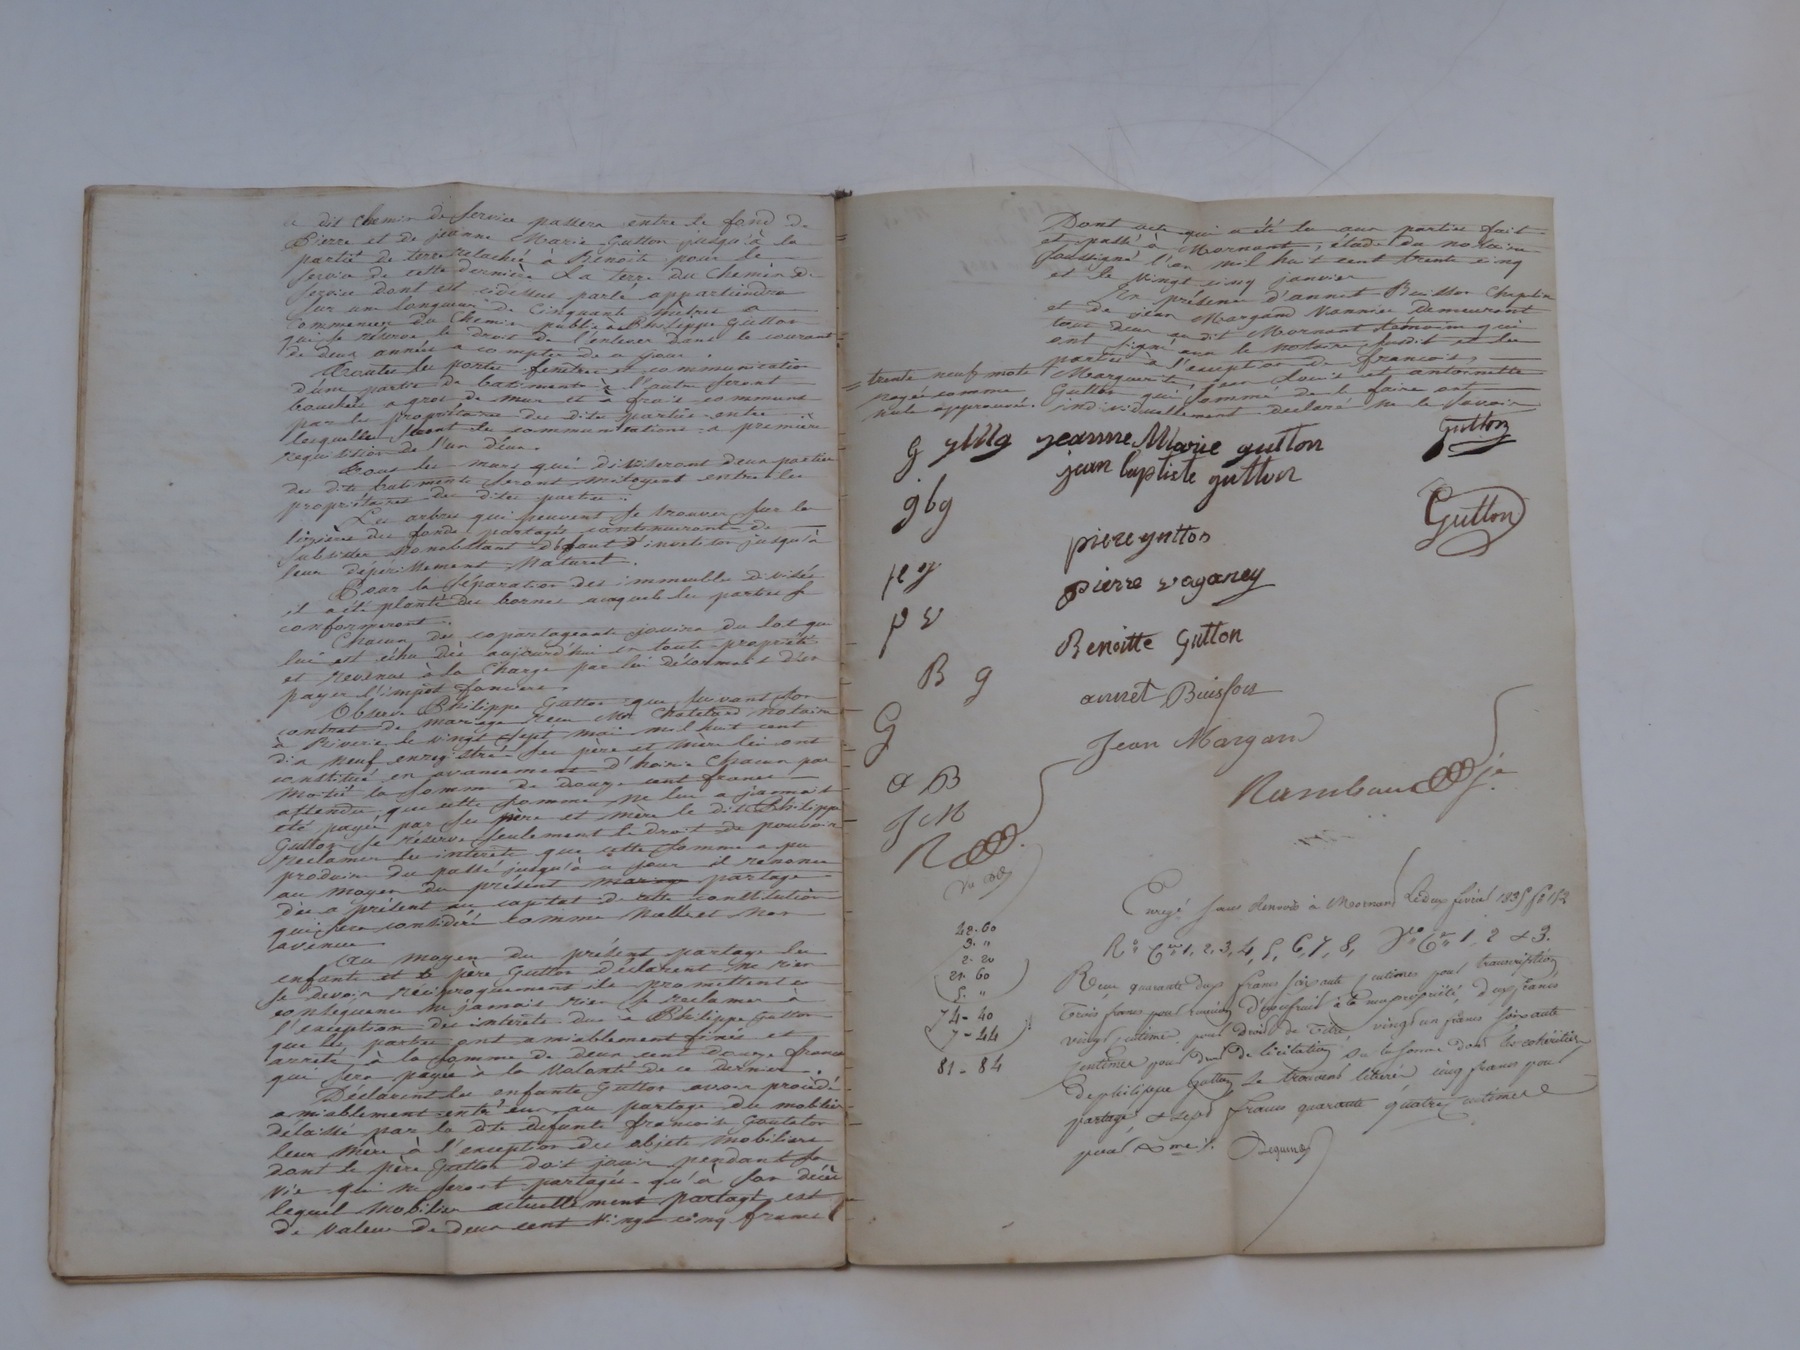 dit Chemin de Service passera entre le fond de
Pierre et de jeanne Marie Gutton jusqu'à la
partie de terre relachée à Benoit pour le
service de cette dernière La terre du Chemin de
service dont est cidessus parlé appartiendra
sur un longueur de Cinquante Mètres à
commencer du Chemin public à Philippe Gutton
qui se réserve le droit de l'enlever dans le courant
de deux années à compter de ce jour.
Toutes les portes fenêtres et communication
d'une partie de batiments à l'autre seront
bouchées à gros de mur et à frais communs
par les propriétaires des dites parties entre
lesquelles seront les communications à première
réquisition de l'un d'eux.
Tous les murs qui diviseront deux parties
des dits batiments seront mitoyens entre les
propriétaires des dites parties.
Les arbres qui peuvent se trouver sur la
lizière des fonds partagés continueront de
subsister nonobstant défaut d'invetison jusqu'à
leur dépérissement Naturel.
Pour la séparation des immeubles divisés
il a été planté des bornes auxquels les parties se
conformeront.
Chacun des copartageants jouira du lot qui
lui est échu dès aujourd'hui en toute propriété
et revenus à la Charge par lui désormais d'en
payer l'impôt foncière.
Observe Philippe Gutton que suivant son
contrat de mariage reçu Mr Chatelard notaire
à Riverie le vingt sept mai mil huit cent
dix neuf enregistré ses père et mère lui ont
constitué en avancement d'hoirie Chacun par
Moitié la somme de douze cent francs
attendu que cette somme ne lui a jamais
été payée par ses père et mère le dit Philippe
Gutton se réserve seulement le droit de pouvoir
réclamer les intérêts que cette somme a pu
produire du passé jusqu'à ce jour il renonce
au moyen du présent mariage partage
dès à présent au capital de cette constitution
qui sera considéré comme Nulle et Non
avenue
Au moyen du présent partage les
enfants et le père Gutton déclarent ne rien
se devoir réciproquement ils promettent en
conséquence ne jamais rien se réclamer à
l'exception des intérêts dus à Philippe Gutton
que les parties ont amiablement fixés et
arrêté à la somme de deux cent douze francs
qui sera payée à la Volonté de ce dernier.
Déclarent les enfants Gutton avoir procédé
amiablement entr'eux au partage du mobilier
délaissé par la dte défunte françoise Goutaton
leur Mère à l'exception des objets Mobiliers
dont le père Gutton doit jouir pendant sa
vie qui ne seront partagés qu'à son décès
lequel Mobilier actuellement partagé est
de Valeur de deux cent Vingt cinq francs
Dont acte qui a été lu aux parties fait
et passé à Mornant, étude du notaire
soussigné l'an mil huit cent trente cinq
et le vingt cinq janvier
En présence d'annet Buisson Chapelier
et de jean Margand Vannier Demeurant
tous deux au dit Mornant témoins qui
ont signé avec le notaire susdit et les
parties à l'exception de françois,
Marguerite, jean Louis et antoinette
Gutton qui sommé de le faire ont
individuellement declaré ne le savoir
trente neuf mots
rayés comme
nuls approuvés.
G jMg jeanne Marie gutton Gutton
jean baptiste gutton
gbg Gutton
piere gutton
pe g
pierre vaganey
p v
Benoitte Gutton
B g
annet Buisson
G
Jean Margand
a B
J M
Rambaud
R
Enregé sans Renvois à Mornant Le deux février 1835 fo 152
Ro Ces 1, 2, 3, 4, 5, 6, 7, 8, Vo Ces 1, 2 & 3.
Reçu quarante deux francs soixante centimes pour transcription
Trois francs pour réunion d'usufruit à la nue propriété, deux francs
vingt centimes pour Droits de Titre, vingt un francs soixante
centimes pour droit de licitation sur la somme dont les cohéritiers
de philippe Gutton se trouvent libérés cinq francs pour
partage & sept francs quarante quatre centimes
pour Dme.
42-60
3. "
2. 20
21. 60
5. "
74-40
7-44
81-84